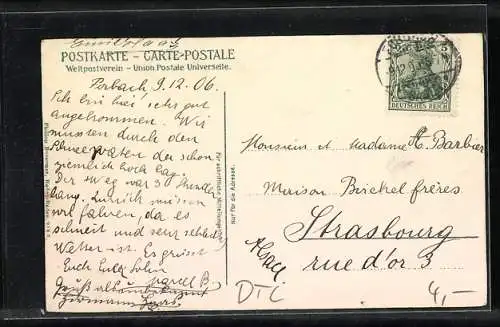 POSTKARTE – CARTE-POSTALE
Weltpostverein – Union Postale Universelle.
Forbach 9.12.06.
Ich bin hier sehr gut
angekommen. Wir
mussten durch den
Schnee waten der schon
ziemlich hoch lag.
Der Weg war 3
lang. Zurück müssen
wir fahren, da es
schneit und sehr schlechtes
Wetter ist. Es grüsst
Euch Euer Sohn
Marcel B.
Gruß
Hermann
Nur für die Adresse.
DEUTSCHES REICH
5
Monsieur et Madame A. Barbier
Maison Brickel frères
Strasbourg
rue d'or 3
DTC
4,–